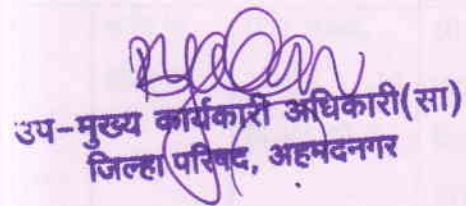 उप-मुख्य कार्यकारी अधिकारी(सा)
जिल्हा परिषद, अहमदनगर